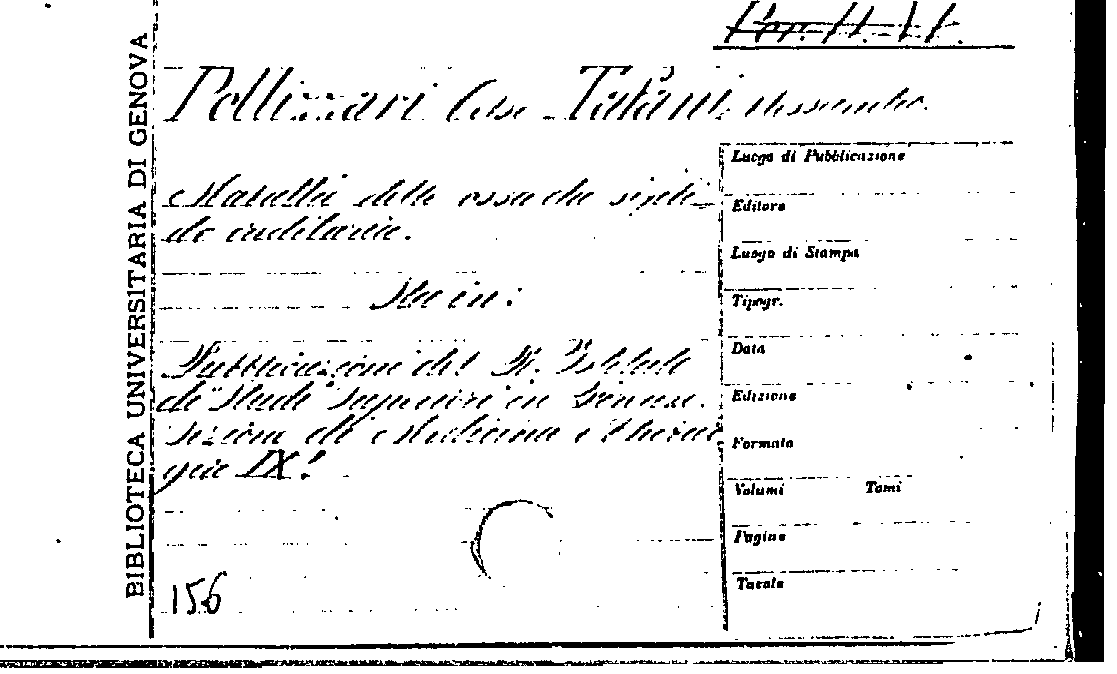 BIBLIOTECA UNIVERSITARIA DI GENOVA
Pellizzari Celso Tafani
Malattia delle ossa da sifili-
de ereditaria.
Sta in:
Pubblicazioni del R. Istituto
di Studi Superiori in Firenze.
Sezione di Medicina e Chirur
gia IX!
156
Luogo di Pubblicazione
Editore
Luogo di Stampa
Tipogr.
Data
Edizione
Formato
Volumi Tomi
Pagine
Tavole